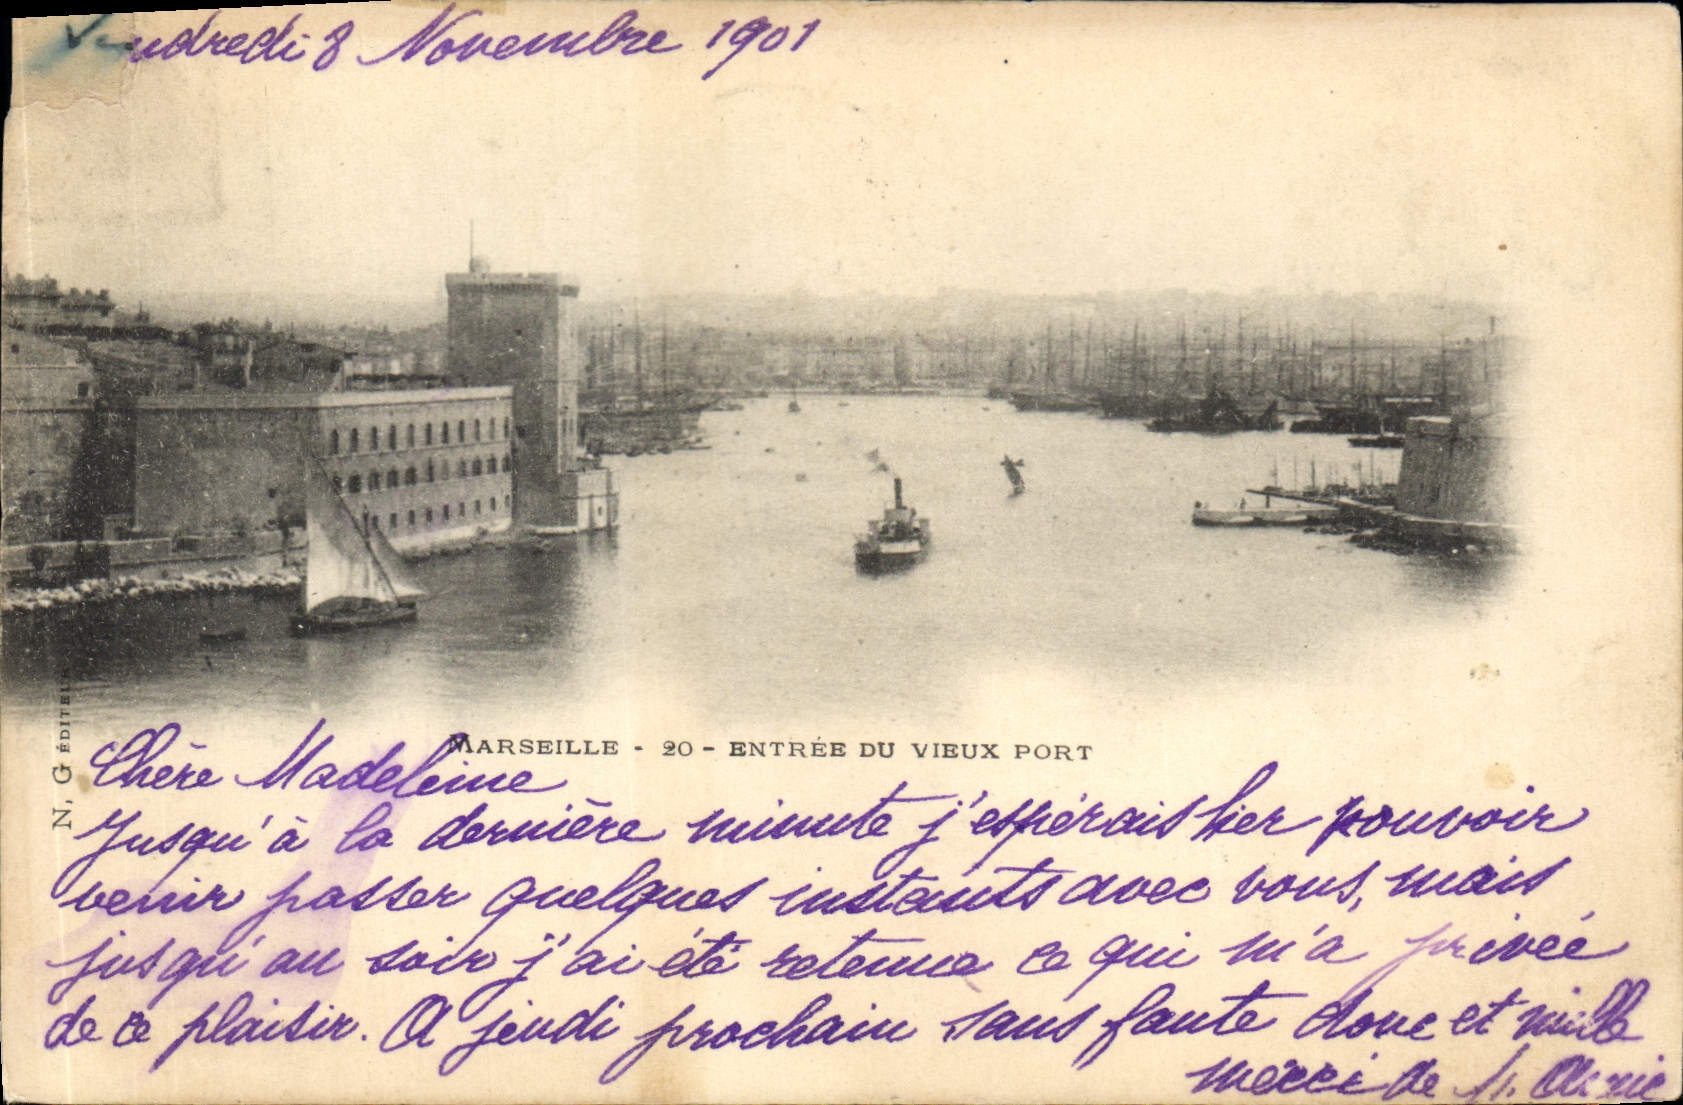 Vendredi 8 Novembre 1901
MARSEILLE - 20 - ENTRÉE DU VIEUX PORT
N, G ÉDITEUR
Chère Madeleine
Jusqu'à la dernière minute j'espérais hier pouvoir
venir passer quelques instants avec vous, mais
jusqu'au soir j'ai été retenue ce qui m'a privée
de ce plaisir. A jeudi prochain sans faute donc et mille
merci de